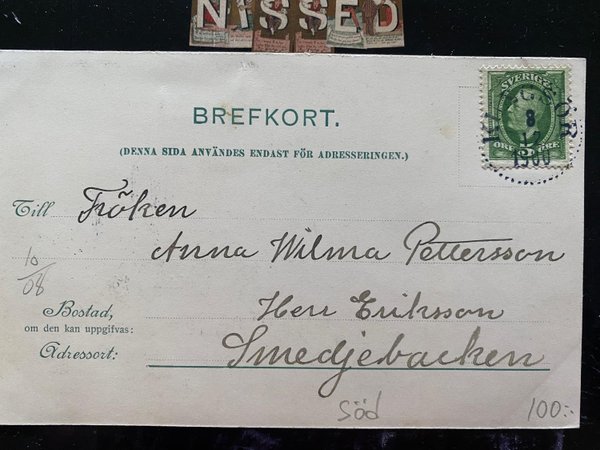 NISSED
BREFKORT.
(DENNA SIDA ANVÄNDES ENDAST FÖR ADRESSERINGEN.)
SVERIGE
5
ÖRE ÖRE
KUNGSÖR
8
12
1900
Till Fröken
Anna Wilma Pettersson
10/08
Bostad,
om den kan uppgifvas:
Herr Eriksson
Adressort:
Smedjebacken
Söd
100:-